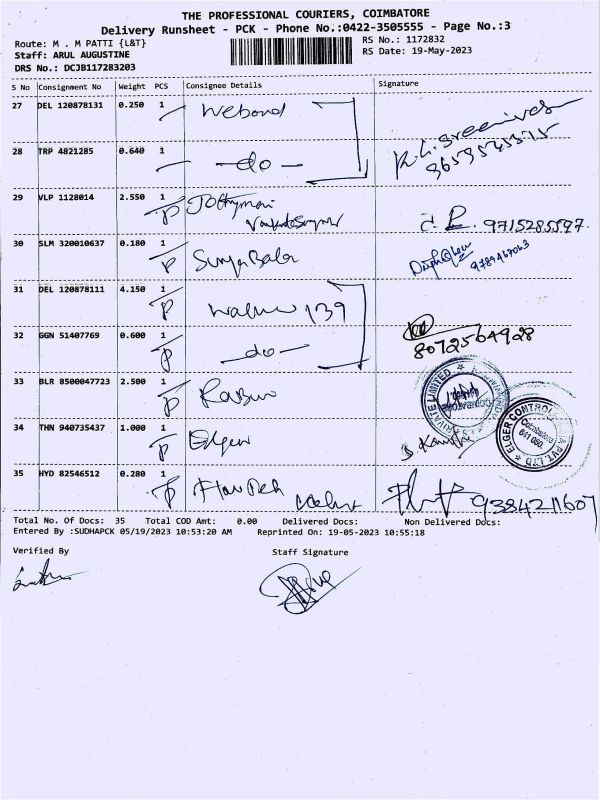 THE PROFESSIONAL COURIERS, COIMBATORE
Delivery Runsheet - PCK - Phone No.:0422-3505555 - Page No.:3
Route: M . M PATTI {L&T}
RS No.: 1172832
Staff: ARUL AUGUSTINE
RS Date: 19-May-2023
DRS No.: DCJB117283203
S No Consignment No Weight PCS Consignee Details Signature
27 DEL 120878131 0.250 1 Webond
R.G. Sreenivas
28 TRP 4821285 0.640 1 -do-
29 VLP 1128014 2.550 1
9715285597
30 SLM 320010637 0.180 1 Surya Bala
9789467063
31 DEL 120878111 4.150 1 139
32 GGN 51407769 0.600 1 -do- 8072504928
33 BLR 8500047723 2.500 1
PRIVATE LIMITED
34 THN 940735437 1.000 1 Elger
ELGER CONTROL PVT LTD
Coimbatore
641 050
35 HYD 82546512 0.280 1 9384211607
Total No. Of Docs: 35 Total COD Amt: 0.00 Delivered Docs: Non Delivered Docs:
Entered By :SUDHAPCK 05/19/2023 10:53:20 AM Reprinted On: 19-05-2023 10:55:18
Verified By Staff Signature